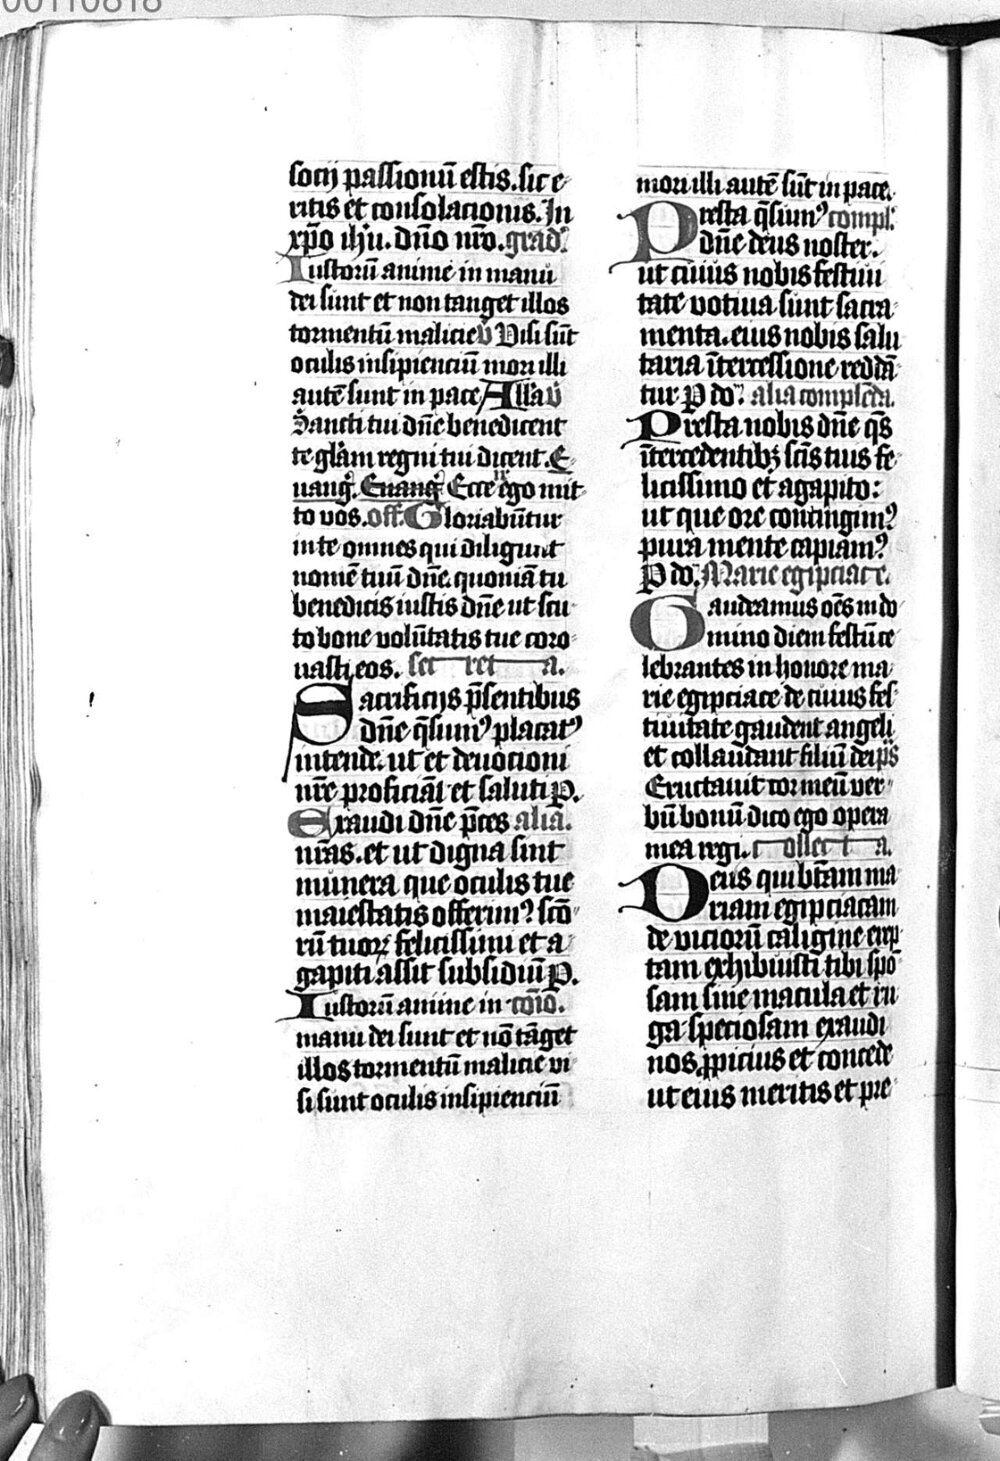 00110818
socij passionū estis. sic e
ritis et consolacionis. In
xp̄o ih̄u. dn̄o nr̄o. grad̄
Iustorū anime in manu
dei sunt et non tanget illos
tormentū malicie v̄ Visi sūt
oculis insipienciū mori illi
autē sunt in pace Alla v̄
Sancti tui dn̄e benedicent
te gl̄am regni tui dicent. E
uanḡ. Euanḡ Ecce ego mit
to vos. off. Gloriabūtur
in te omnes qui diligunt
nomē tuū dn̄e. quoniā tu
benedicis iustis dn̄e ut scu
to bone volūtatis tue coro
nasti eos. secreta.
Sacrificijs p̄sentibus
dn̄e q̄sumꝰ placatꝰ
intende. ut et deuocioni
nr̄e proficiāt et saluti P.
Exaudi dn̄e p̄ces alia.
nr̄as. et ut digna sint
munera que oculis tue
maiestatis offerimꝰ scō
rū tuoꝝ felicissimi et a
gapiti assit subsidiū P.
Iustorū anime in cōio.
manu dei sunt et nō tāget
illos tormentū malicie vi
si sunt oculis insipienciū
mori illi autē sūt in pace.
Presta q̄sumꝰ compl̄.
dn̄e deus noster.
ut cuius nobis festiui
tate votiua sunt sacra
menta. eius nobis salu
taria ītercessione reddā
tur P do. alia complēda.
Presta nobis dn̄e q̄s
ītercedentibꝫ sc̄is tuis fe
licissimo et agapito:
ut que ore contingimꝰ
pura mente capiamꝰ
P do. Marie egipciace.
Gaudeamus oēs in do
mino diem festū ce
lebrantes in honore ma
rie egipciace de cuius fes
tiuitate gaudent angeli
et collaudant filiū dei p̄s
Eructauit cor meū ver
bū bonū dico ego opera
mea regi. collecta.
Deus qui bt̄am ma
riam egipciacam
de viciorū caligine erep
tam exhibuisti tibi spō
sam sine macula et ru
ga speciosam exaudi
nos ꝓpicius et concede
ut eius meritis et pre